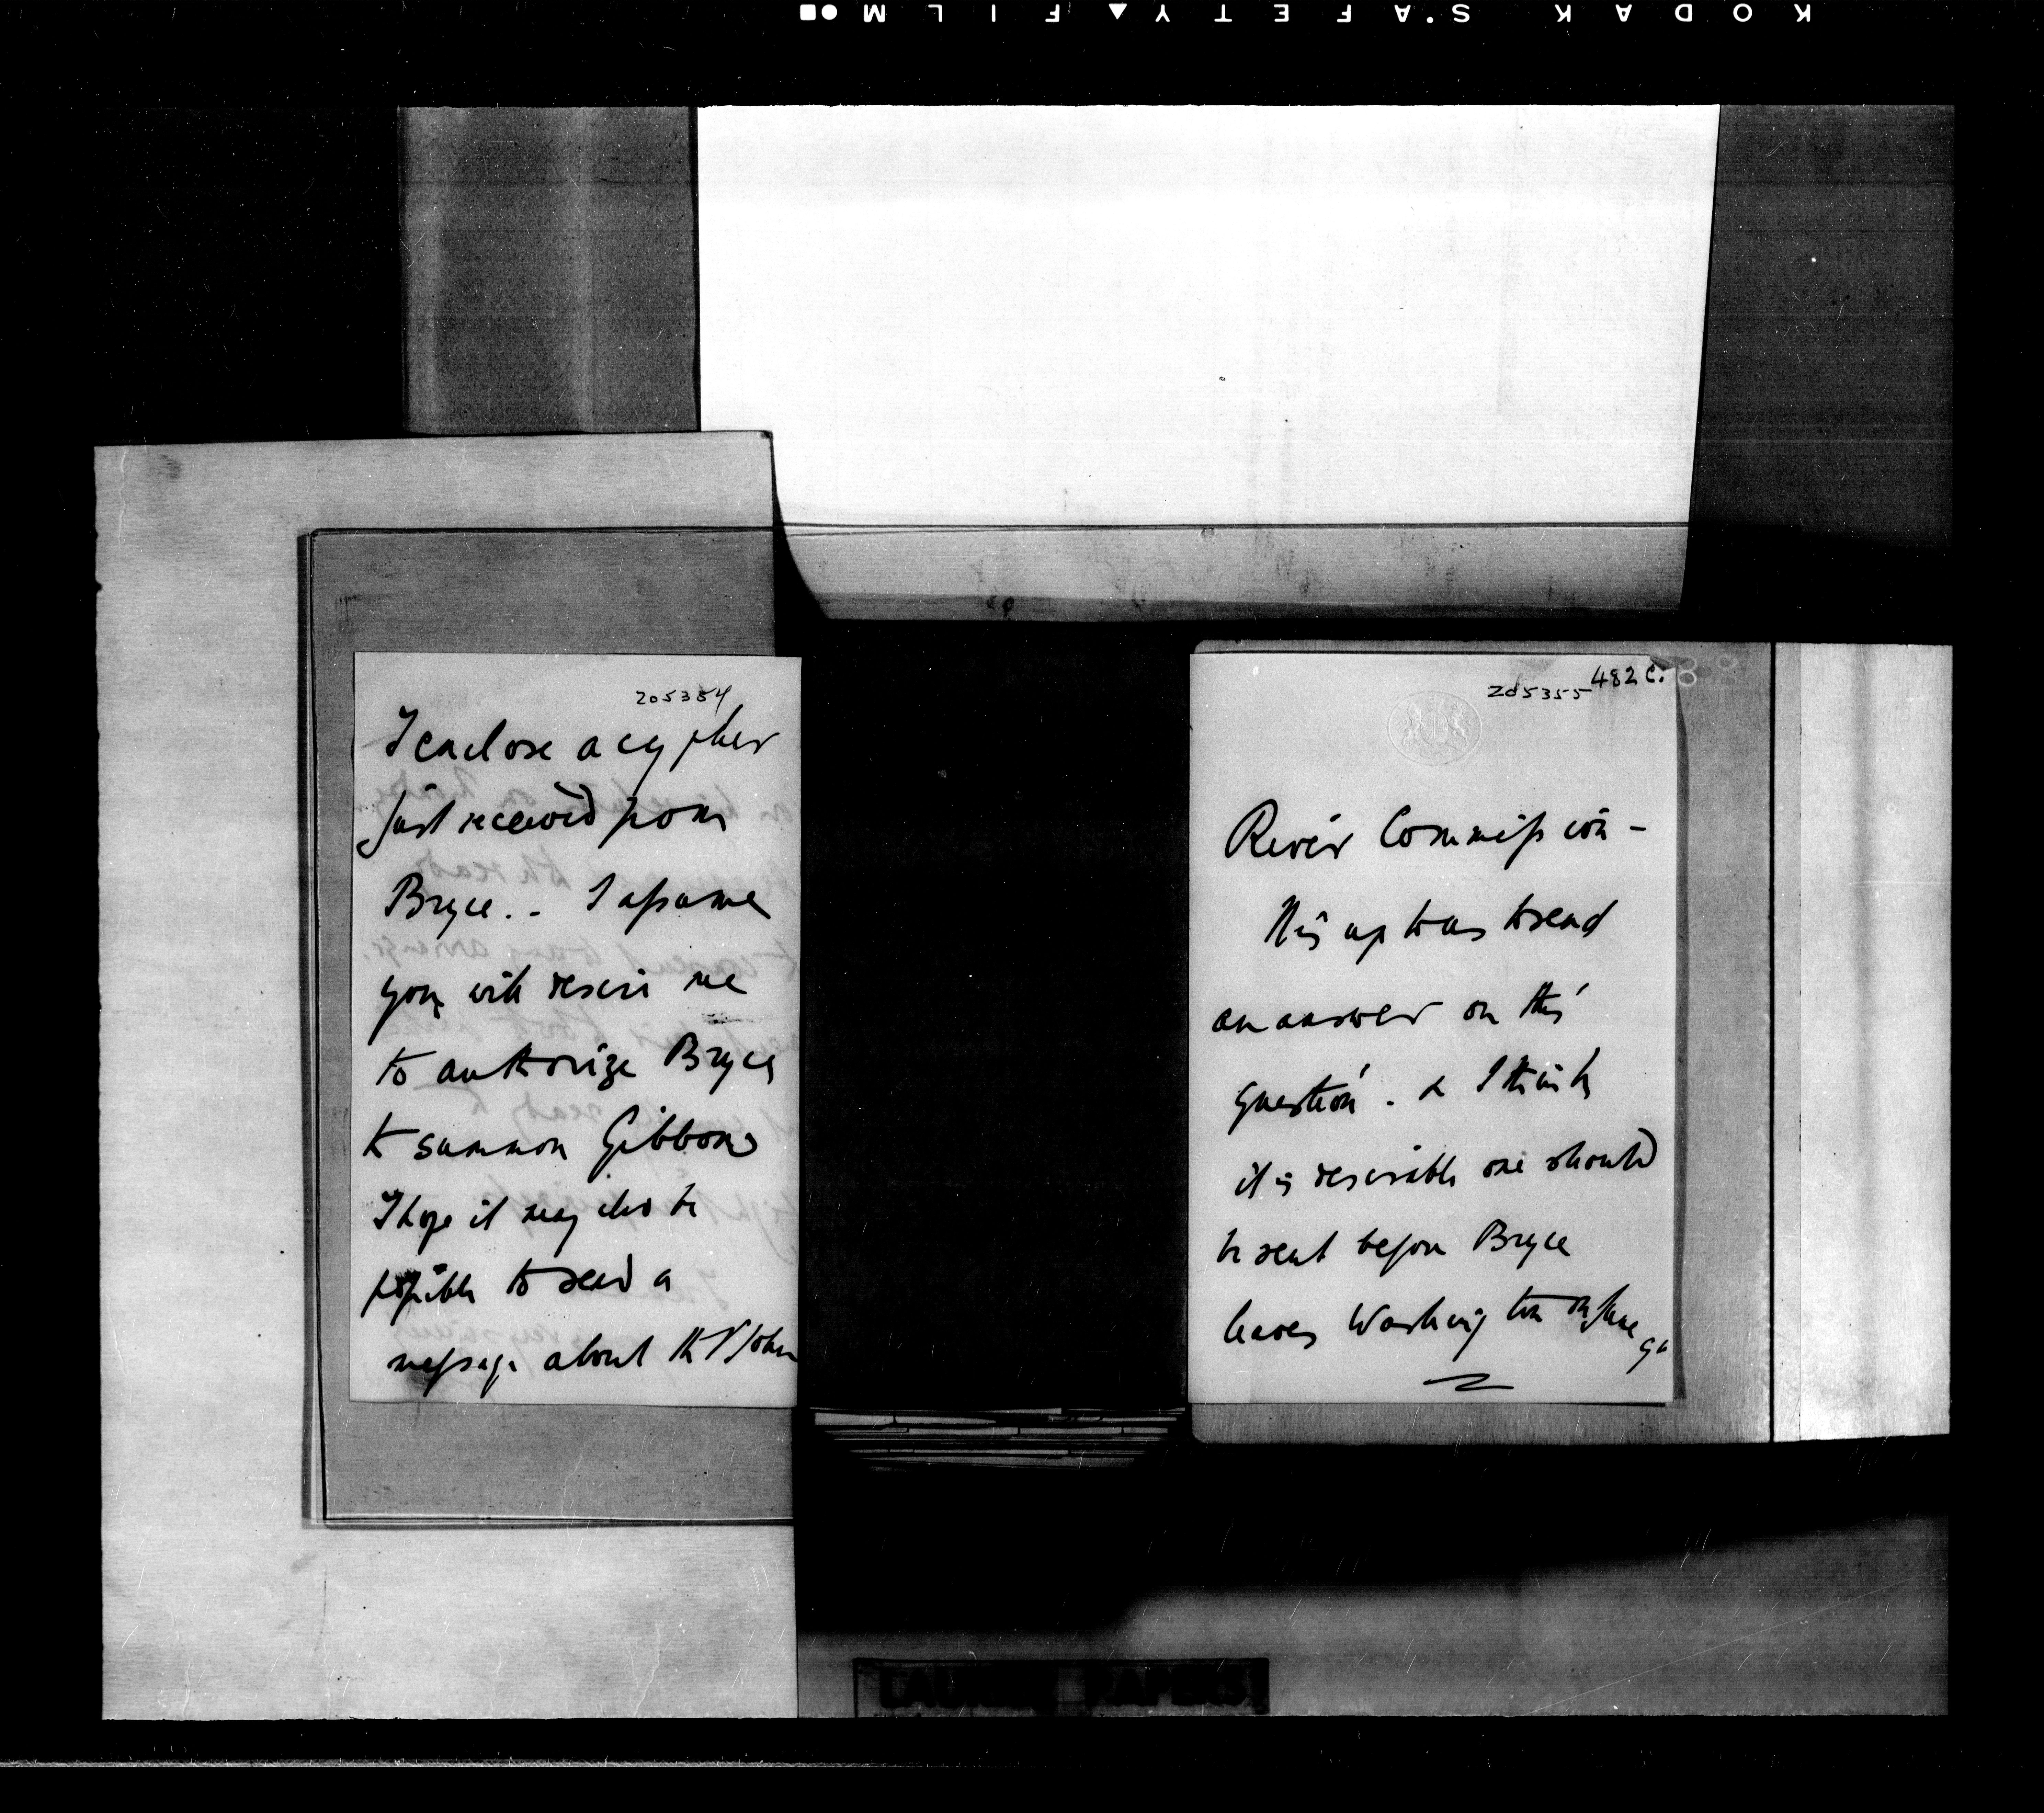 KODAK SAFETY FILM
205354
I enclose a cypher
just received from
Bryce. - I assume
you will desire me
to authorize Bryce
to summon Gibbons
I hope it may also be
possible to send a
message about the St John
205355
482 C.
River Commission -
up to us to send
an answer on this
question. & I think
it is desirable one should
be sent before Bryce
leaves Washington on June
LAURIER PAPERS